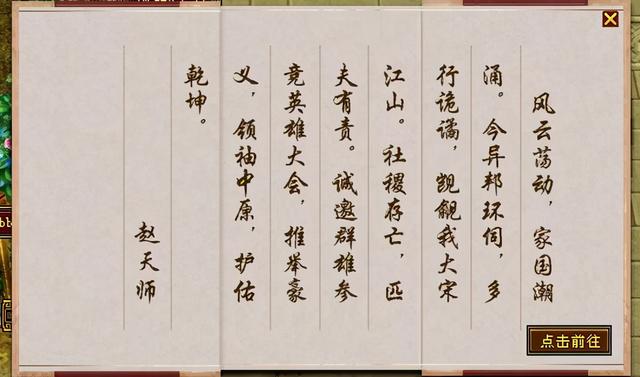 风云荡动，家国潮
涌。今异邦环伺，多
行诡谲，觊觎我大宋
江山。社稷存亡，匹
夫有责。诚邀群雄参
竞英雄大会，推举豪
义，领袖中原，护佑
乾坤。
赵天师
点击前往